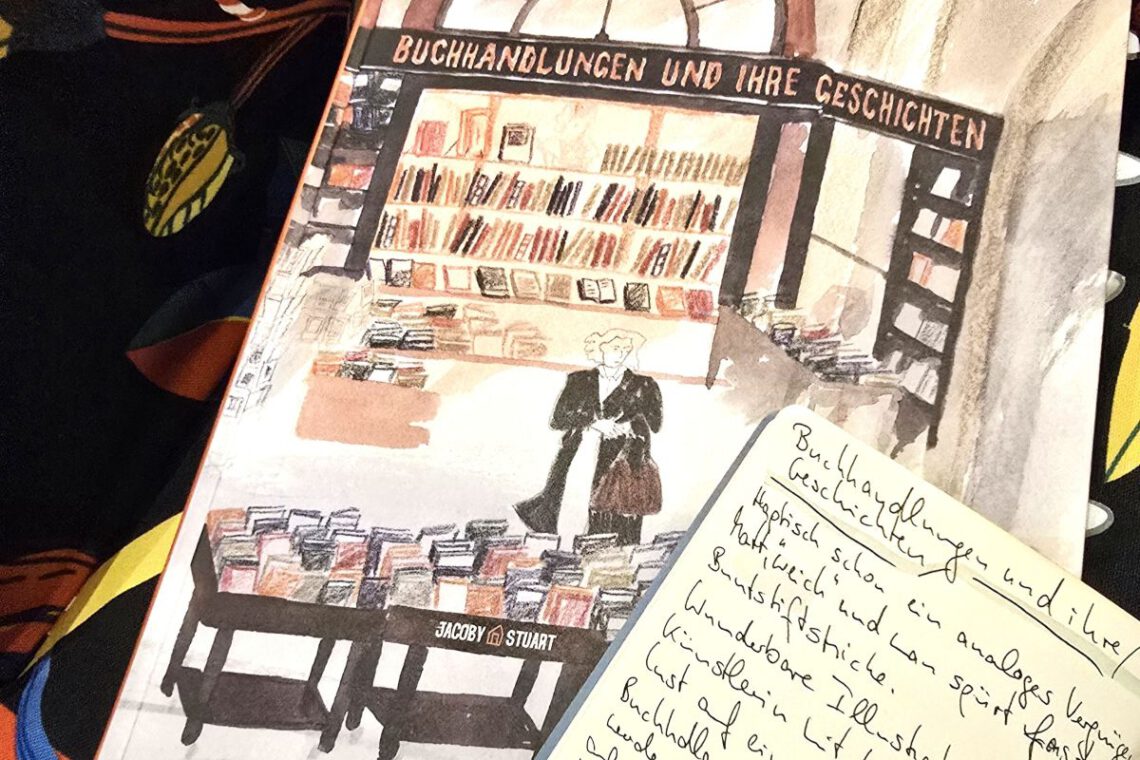 BUCHHANDLUNGEN UND IHRE GESCHICHTEN
JACOBY STUART
Buchhandlungen und ihre
Geschichten
Haptisch schon ein analoges
Matt, "weich" und man spürt fast
Buntstiftstriche.
Wunderbare
Künstlerin mit
Lust auf